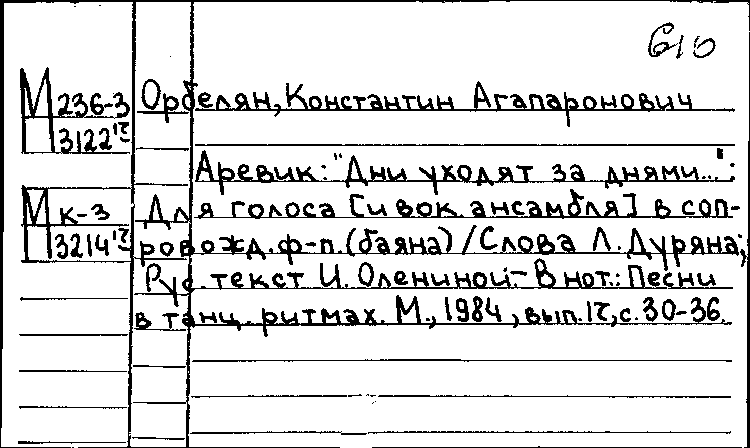 М 236-3 Орбелян, Константин Агапаронович
3122
Аревик: "Дни уходят за днями...":
М к-3 Для голоса [и вок. ансамбля] в соп-
3214 ровожд. ф-п. (баяна) / Слова Л. Дуряна;
Рус. текст И. Олениной.- В нот.: Песни
в танц. ритмах. М., 1984, вып. 17, с. 30-36.